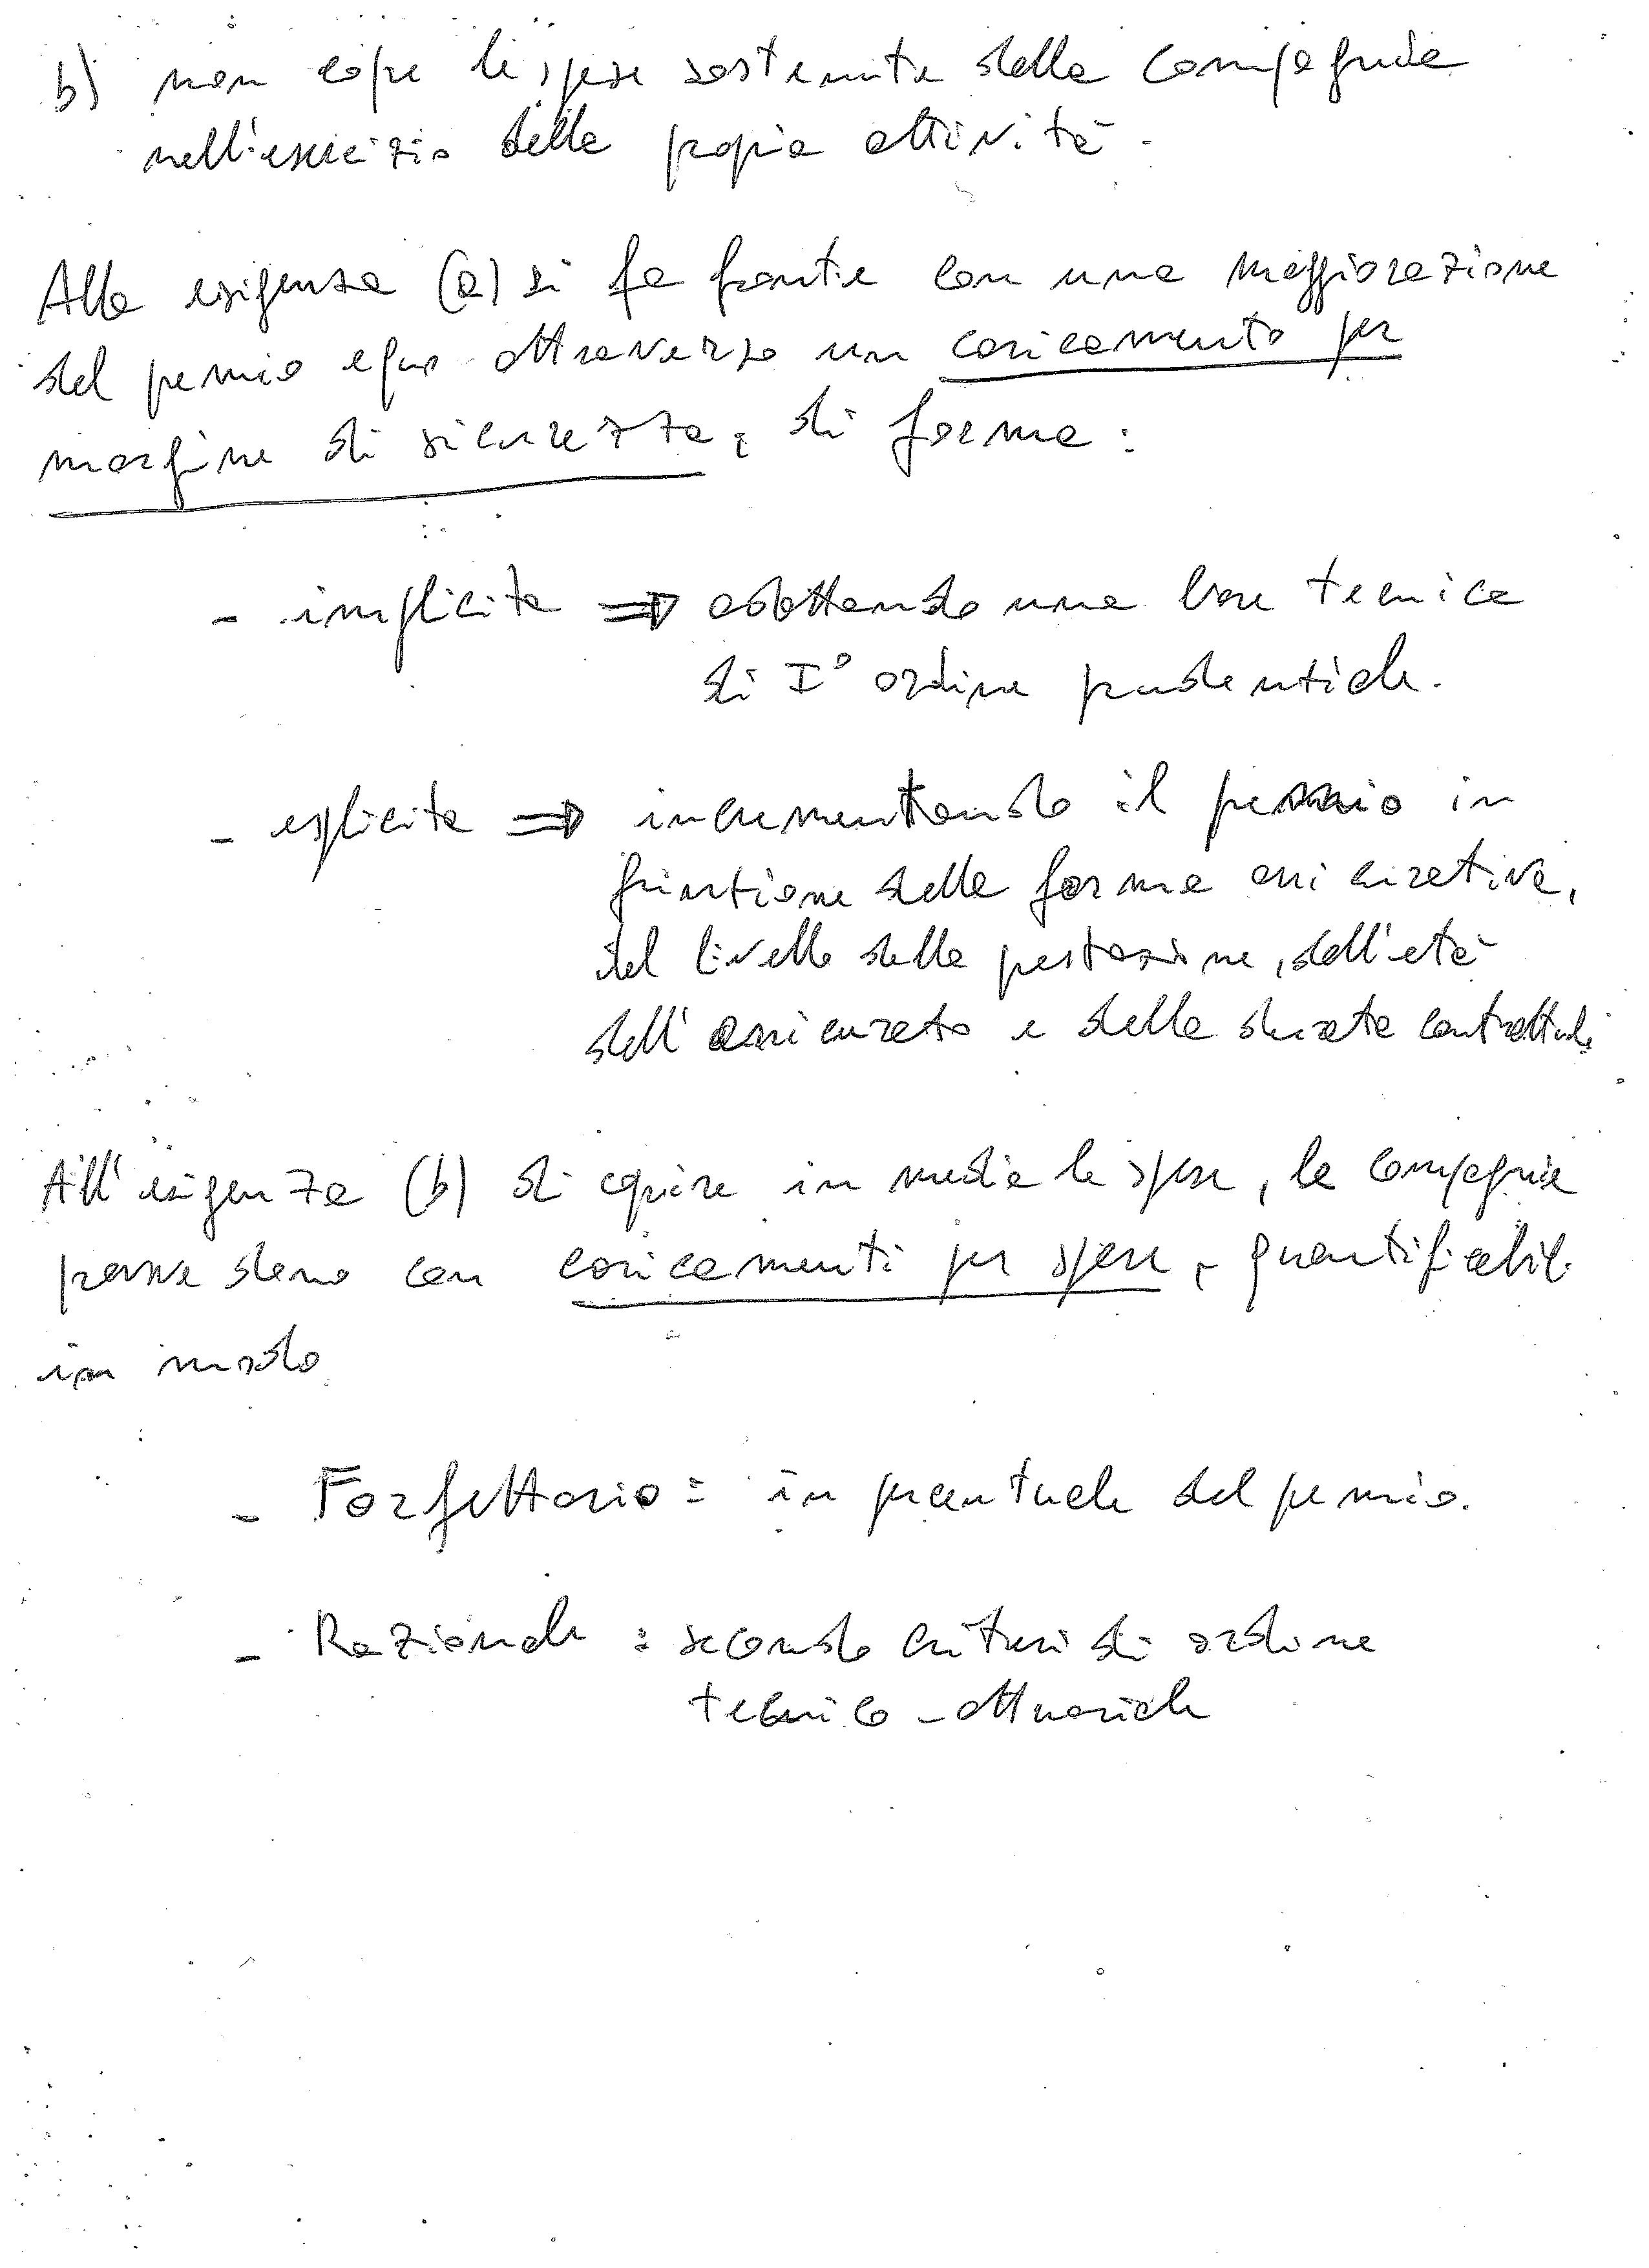 b) non copre le spese sostenute dalla Compagnia
nell'esercizio della propria attività.
Alla esigenza (a) si fa fronte con una maggiorazione
del premio equo attraverso un caricamento per
margine di sicurezza, di forma:
- implicita ⇒ adottando una base tecnica
di I° ordine prudenziale.
- esplicita ⇒ incrementando il premio in
funzione della forma assicurativa,
del livello della prestazione, dell'età
dell'assicurato e della durata contrattuale
All'esigenza (b) di coprire in media le spese, le compagnie
provvedono con caricamenti per spese, quantificabili
in modo
- Forfettario: in percentuale del premio.
- Razionale: secondo criteri di ordine
tecnico-attuariale